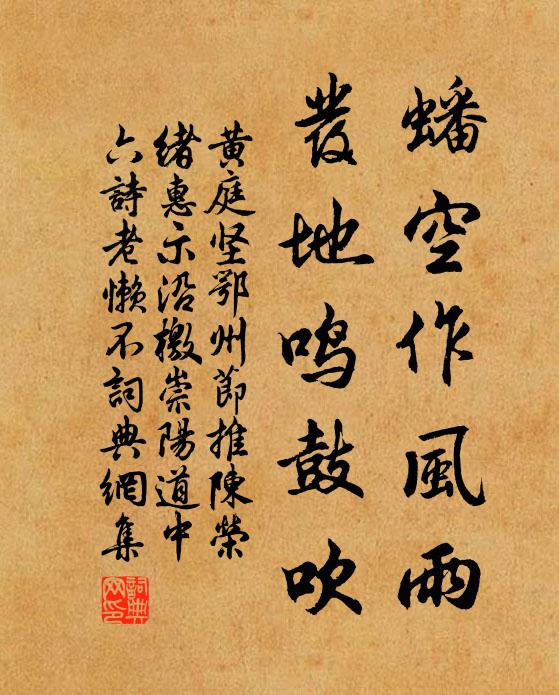 蟠空作風雨
發地鳴鼓吹
黄庭坚鄂州節推陳榮
緒惠示沿檄崇陽道中
六詩老懶不詞典網集
詞典
网印